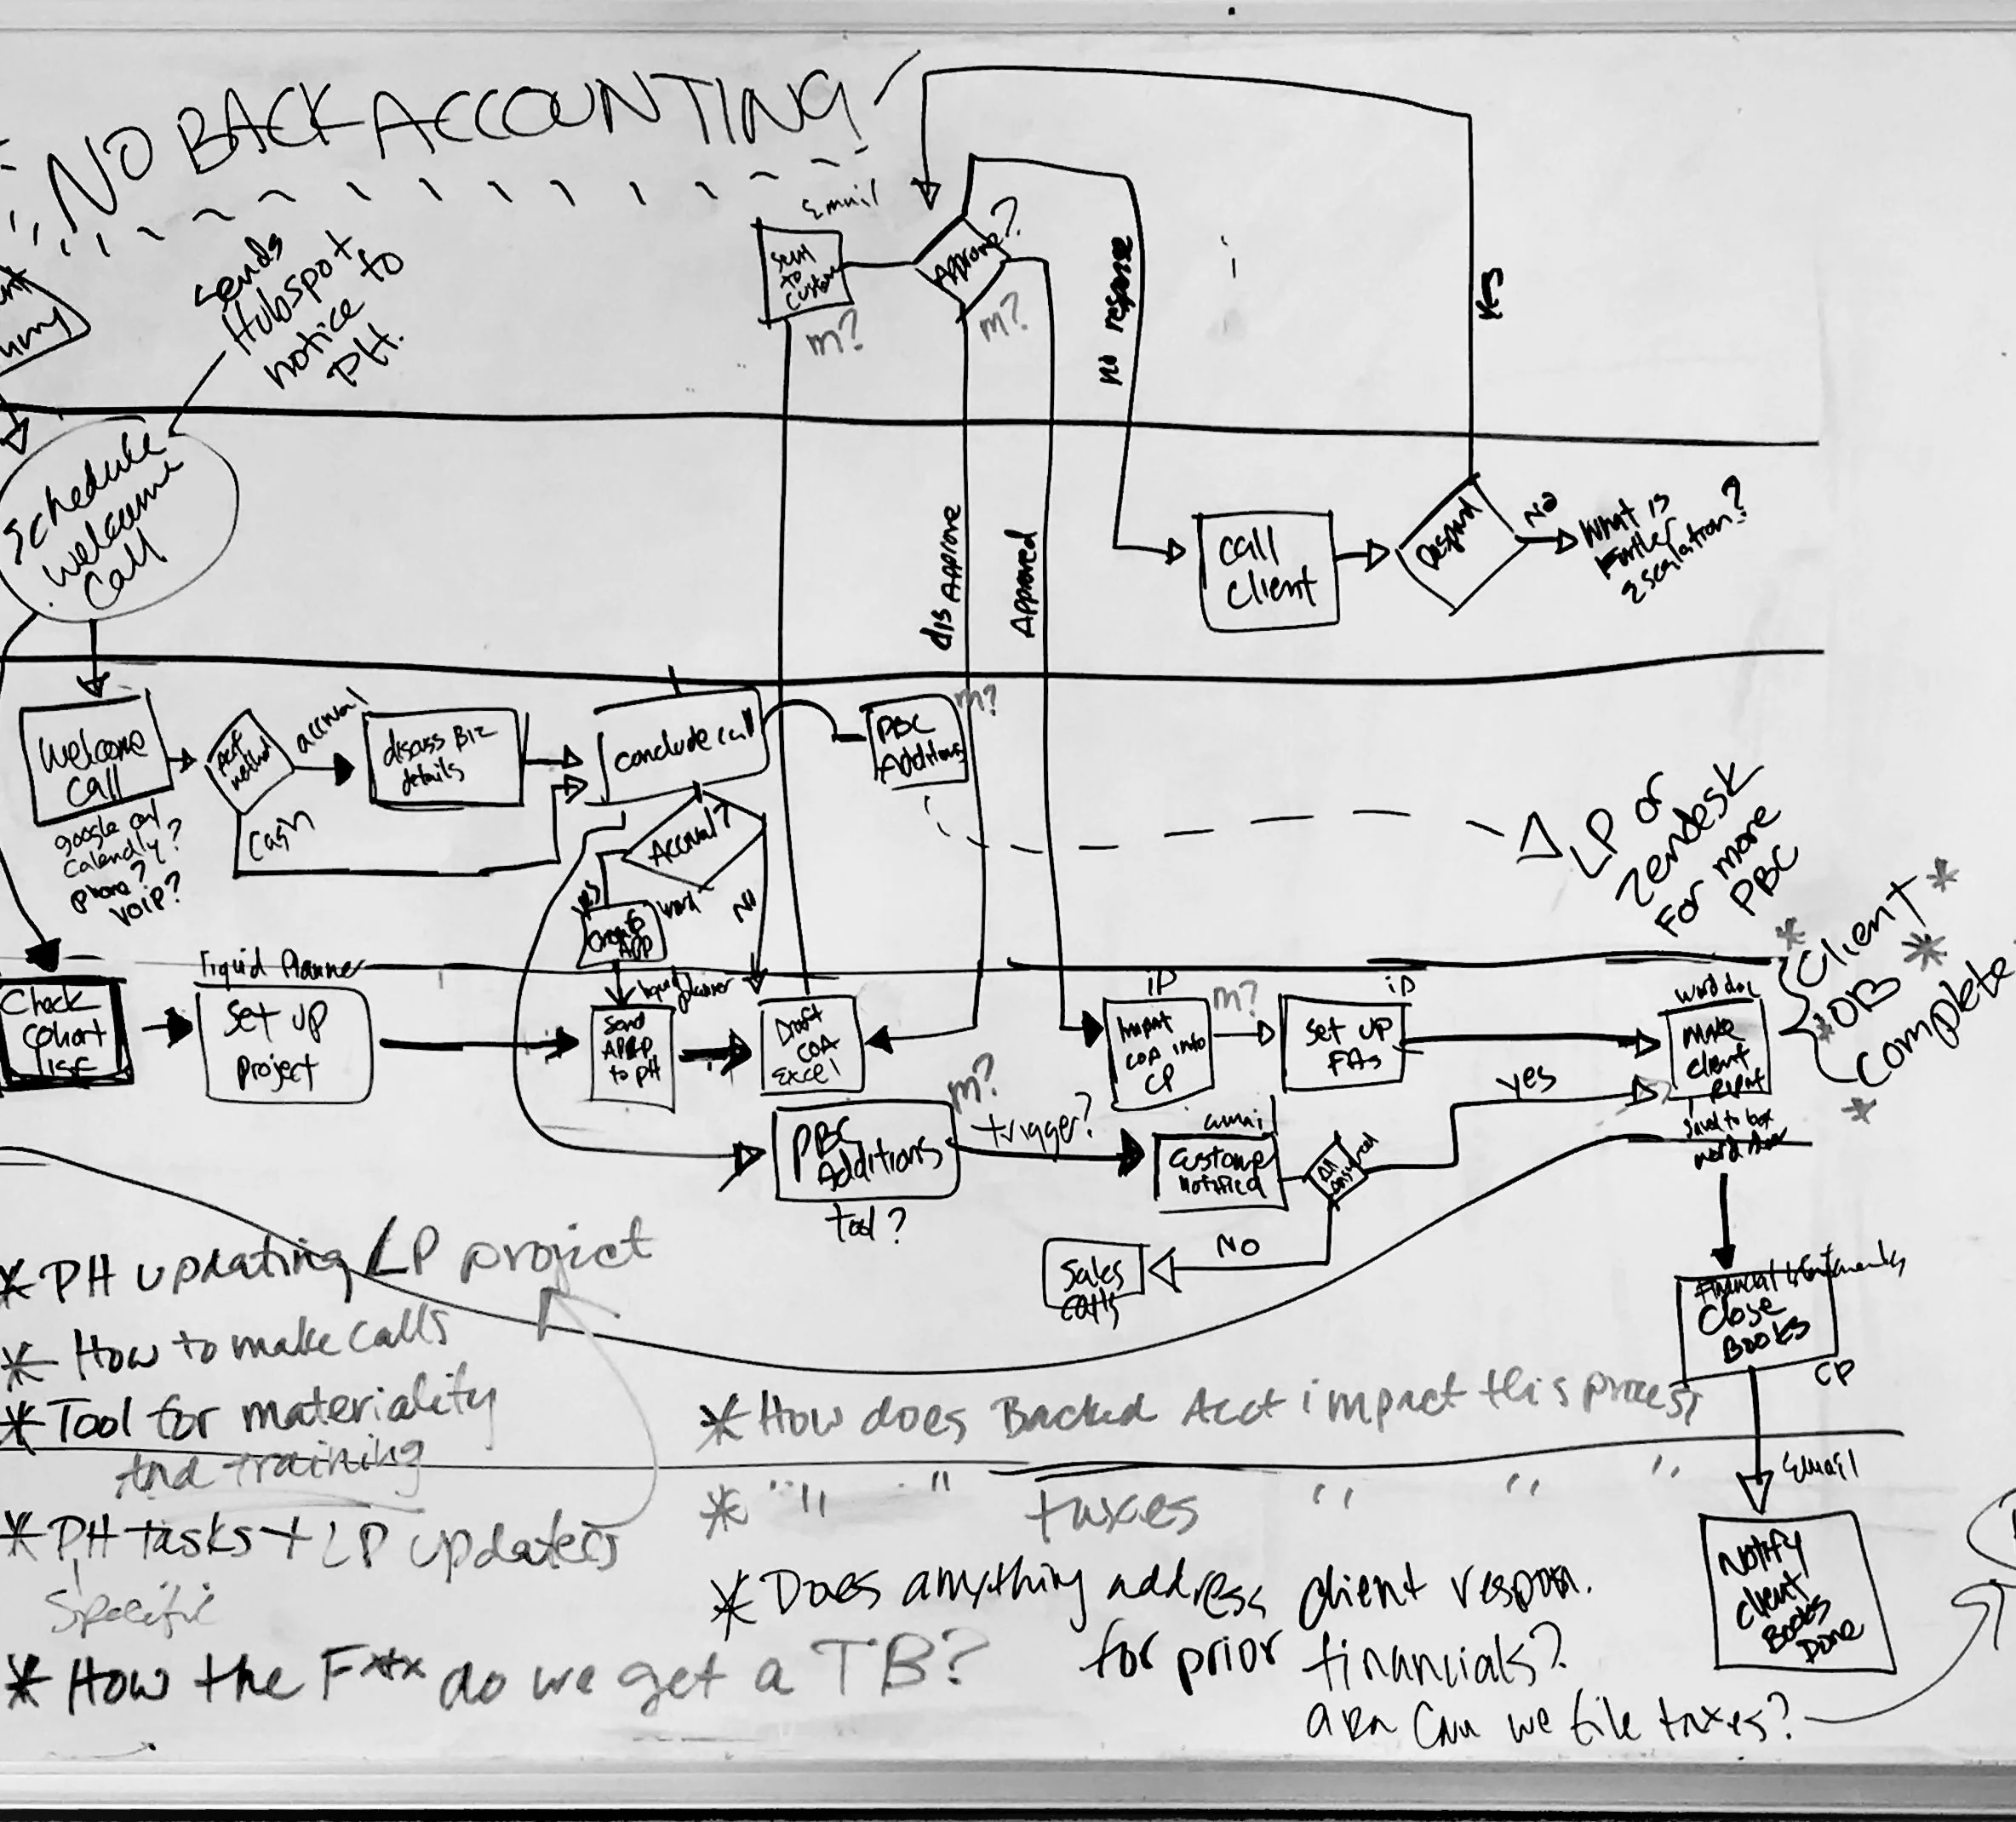 NO BACK ACCOUNTING
Sends
Hubspot
notice to
PH.
Email
Sent
to
Custom
m?
Approve?
m?
no response
yes
Schedule
welcome
Call
disApprove
Approved
call
client
Respond
NO
What is
Further
Escalation?
Welcome
Call
google
Calendly?
phone?
VOIP?
Acct
method
accrual
Cash
discuss Biz
details
conclude call
PBC
Additions
m?
LP or
Zendesk
For more
PBC
Accrual?
yes
NO
word
create
APP
liquid planner
*Client*
*OB*
Complete
*
Check
Cohort
list
Liquid Planner
Set up
project
Send
to PH
Draft
COA
Excel
Import
COA into
CP
m?
Set up
FAs
word doc
Make
client
saved to box
PBC
Additions
tool?
m?
trigger?
email
Customer
notified
All
yes
NO
Sales
calls
Financial Statements
Close
Books
CP
Email
Notify
client
Books
Done
* PH updating LP project
* How to make calls
* Tool for materiality
and training
* PH tasks + LP updates
Specific
* How the F*** do we get a TB?
* How does Backed Acct impact this process
* " " " taxes " " "
* Does anything address client respon.
for prior financials?
Can we file taxes?